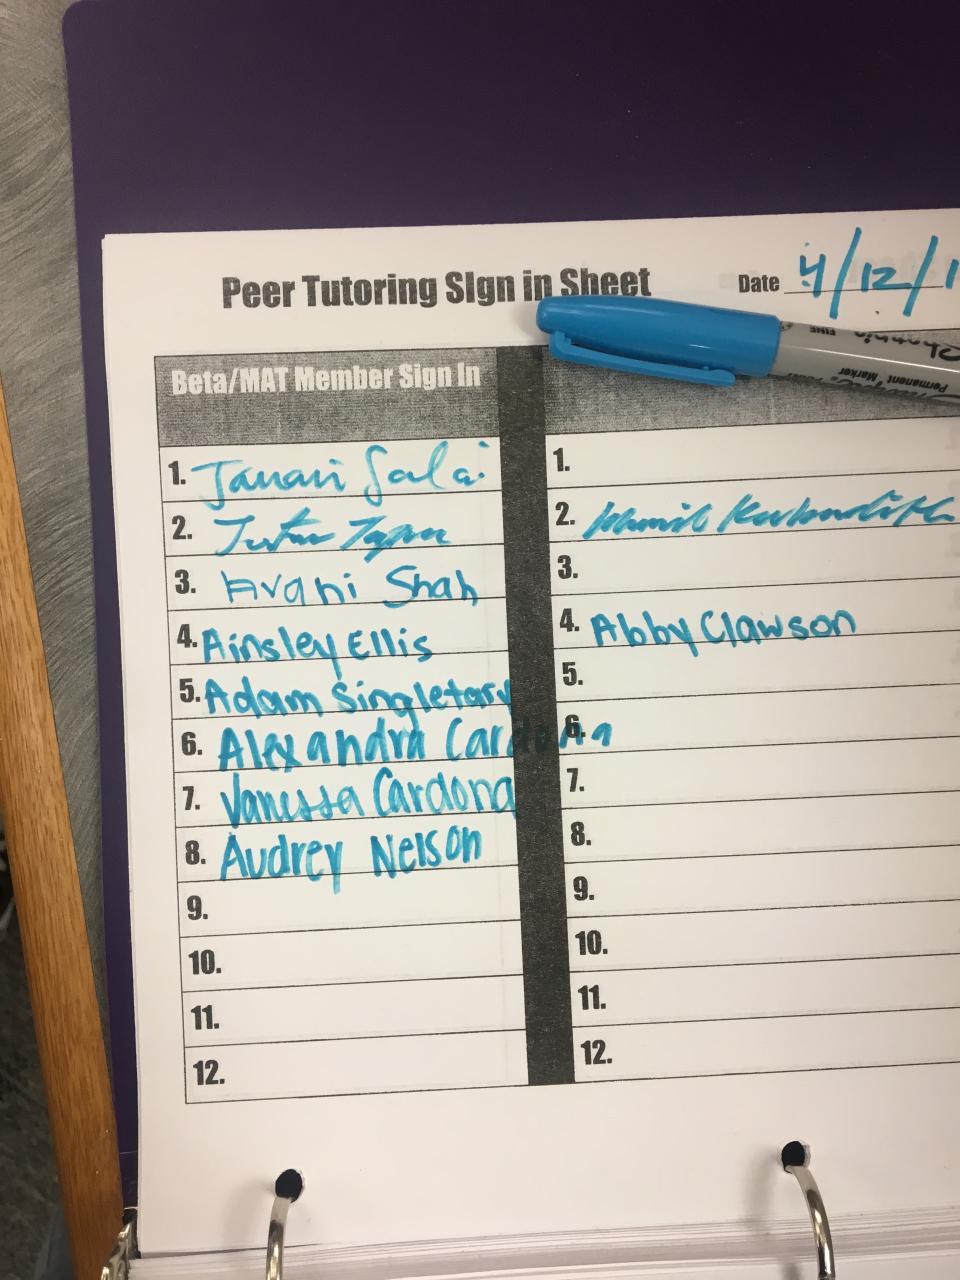 Peer Tutoring Sign in Sheet
Date 4/12/1
Beta/MAT Member Sign In
1. Janani Salai
1.
2. Justin
2.
3. Avani Shah
3.
4. Ainsley Ellis
4. Abby Clawson
5. Adam Singletary
5.
6. Alexandra Cardona
6.
7. Vanessa Cardona
7.
8. Audrey Nelson
8.
9.
9.
10.
10.
11.
11.
12.
12.
Sharpie
FINE
Permanent Marker